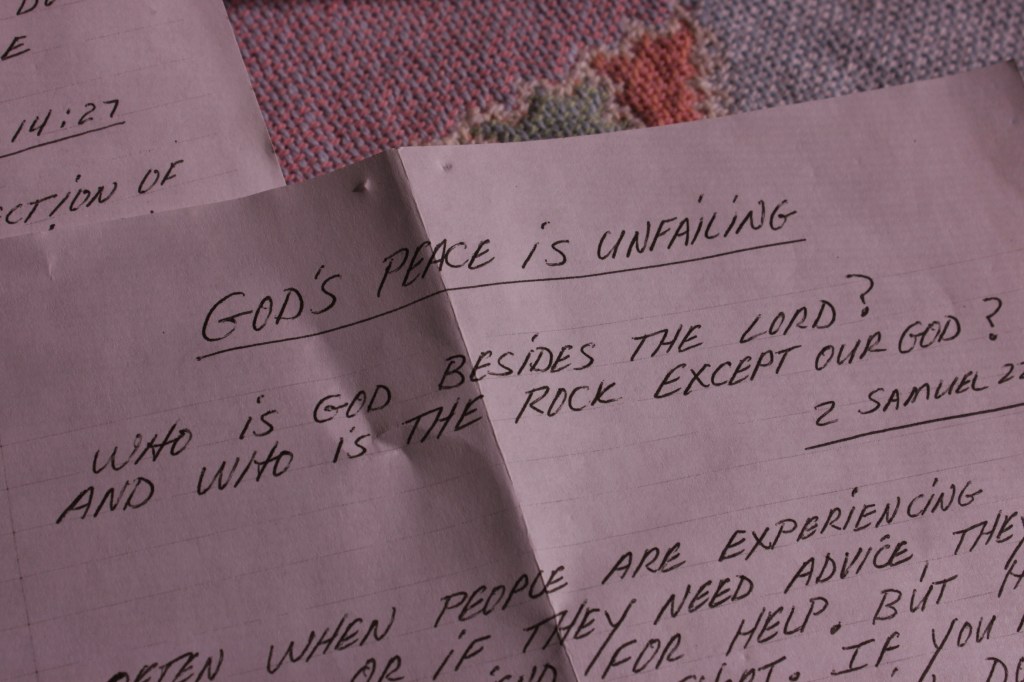 E
14:27
OF
GOD'S PEACE IS UNFAILING
WHO IS GOD BESIDES THE LORD?
AND WHO IS THE ROCK EXCEPT OUR GOD?
2 SAMUEL 22
OFTEN WHEN PEOPLE ARE EXPERIENCING
OR IF THEY NEED ADVICE, THEY
FOR HELP. BUT
IF YOU